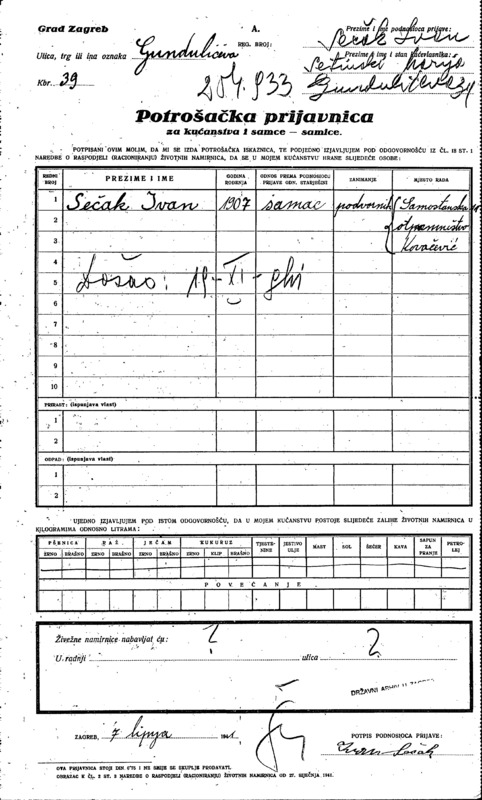 Grad Zagreb
A.
Prezime i ime podnosioca prijave:
Sečak Ivan
Ulica, trg ili ina oznaka Gundulićeva
REG. BROJ:
Prezime i ime i stan kućevlasnika:
Kbr. 39
204.933
Gundulićeva 39
Potrošačka prijavnica
za kućanstva i samce — samice.
POTPISANI OVIM MOLIM, DA MI SE IZDA POTROŠAČKA ISKAZNICA, TE PODJEDNO IZJAVLJUJEM POD ODGOVORNOŠĆU IZ ČL. 18 ST. 1
NAREDBE O RASPODJELI (RACIONIRANJU) ŽIVOTNIH NAMIRNICA, DA SE U MOJEM KUĆANSTVU HRANE SLIJEDEĆE OSOBE:
REDNI BROJ PREZIME I IME GODINA ROĐENJA ODNOS PREMA PODNOSIOCU PRIJAVE ODN. STARJEŠINI ZANIMANJE MJESTO RADA
1 Sečak Ivan 1907 samac podvornik Samostanska
2
3 Kovačević
4
5 Došao: 19-XI-
6
7
8
9
10
PRIRAST: (ispunjava vlast)
1
2
OTPAD: (ispunjava vlast)
1
2
UJEDNO IZJAVLJUJEM POD ISTOM ODGOVORNOŠĆU, DA U MOJEM KUĆANSTVU POSTOJE SLIJEDEĆE ZALIHE ŽIVOTNIH NAMIRNICA U
KILOGRAMIMA ODNOSNO LITRAMA:
PŠENICA RAŽ JEČAM KUKURUZ TJESTENINE JESTIVO ULJE MAST SOL ŠEĆER KAVA SAPUN ZA PRANJE PETROLEJ
ZRNO BRAŠNO ZRNO BRAŠNO ZRNO BRAŠNO ZRNO KLIP BRAŠNO
POVEĆANJE
Živežne namirnice nabavljat ću:
U radnji ulica 2
DRŽAVNI ARHIV U ZAGREBU
ZAGREB, 7 lipnja 1941
POTPIS PODNOSIOCA PRIJAVE:
Ivan Sečak
OVA PRIJAVNICA STOJI DIN. 0'75 I NE SMIJE SE SKUPLJE PRODAVATI.
OBRAZAC K ČL. 2 ST. 3 NAREDBE O RASPODJELI (RACIONIRANJU) ŽIVOTNIH NAMIRNICA OD 27. SIJEČNJA 1941.